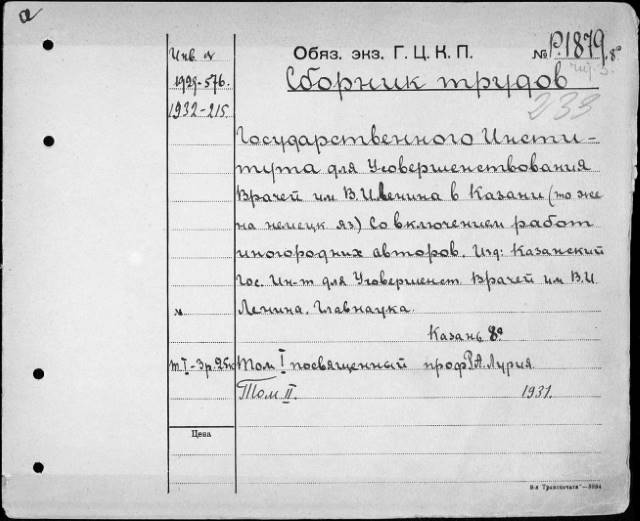 а
Инв. №
1929-576.
1932-215.
Обяз. экз. Г. Ц. К. П.
№ Р.1879. 8°
чит. з.
Сборник трудов
233
Государственного Инсти-
тута для Усовершенствования
Врачей им В.И. Ленина в Казани (то же
на немецк яз.) Со включением работ
иногородних авторов. Изд: Казанский
Гос. Ин-т для Усовершенст. Врачей им В.И.
Ленина. Главнаука.
№
Казань 8°
т. I - 3р. 25к
Том I посвященный проф Р.А. Лурия.
Том II. 1931.
Цена